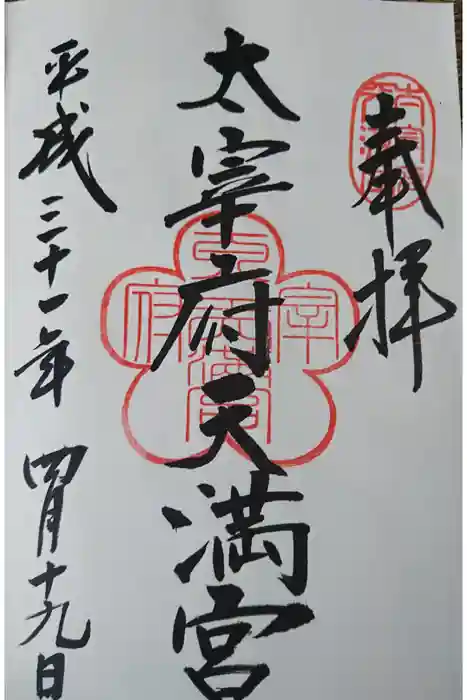 奉拝
太宰府天満宮
平成三十一年 四月十九日